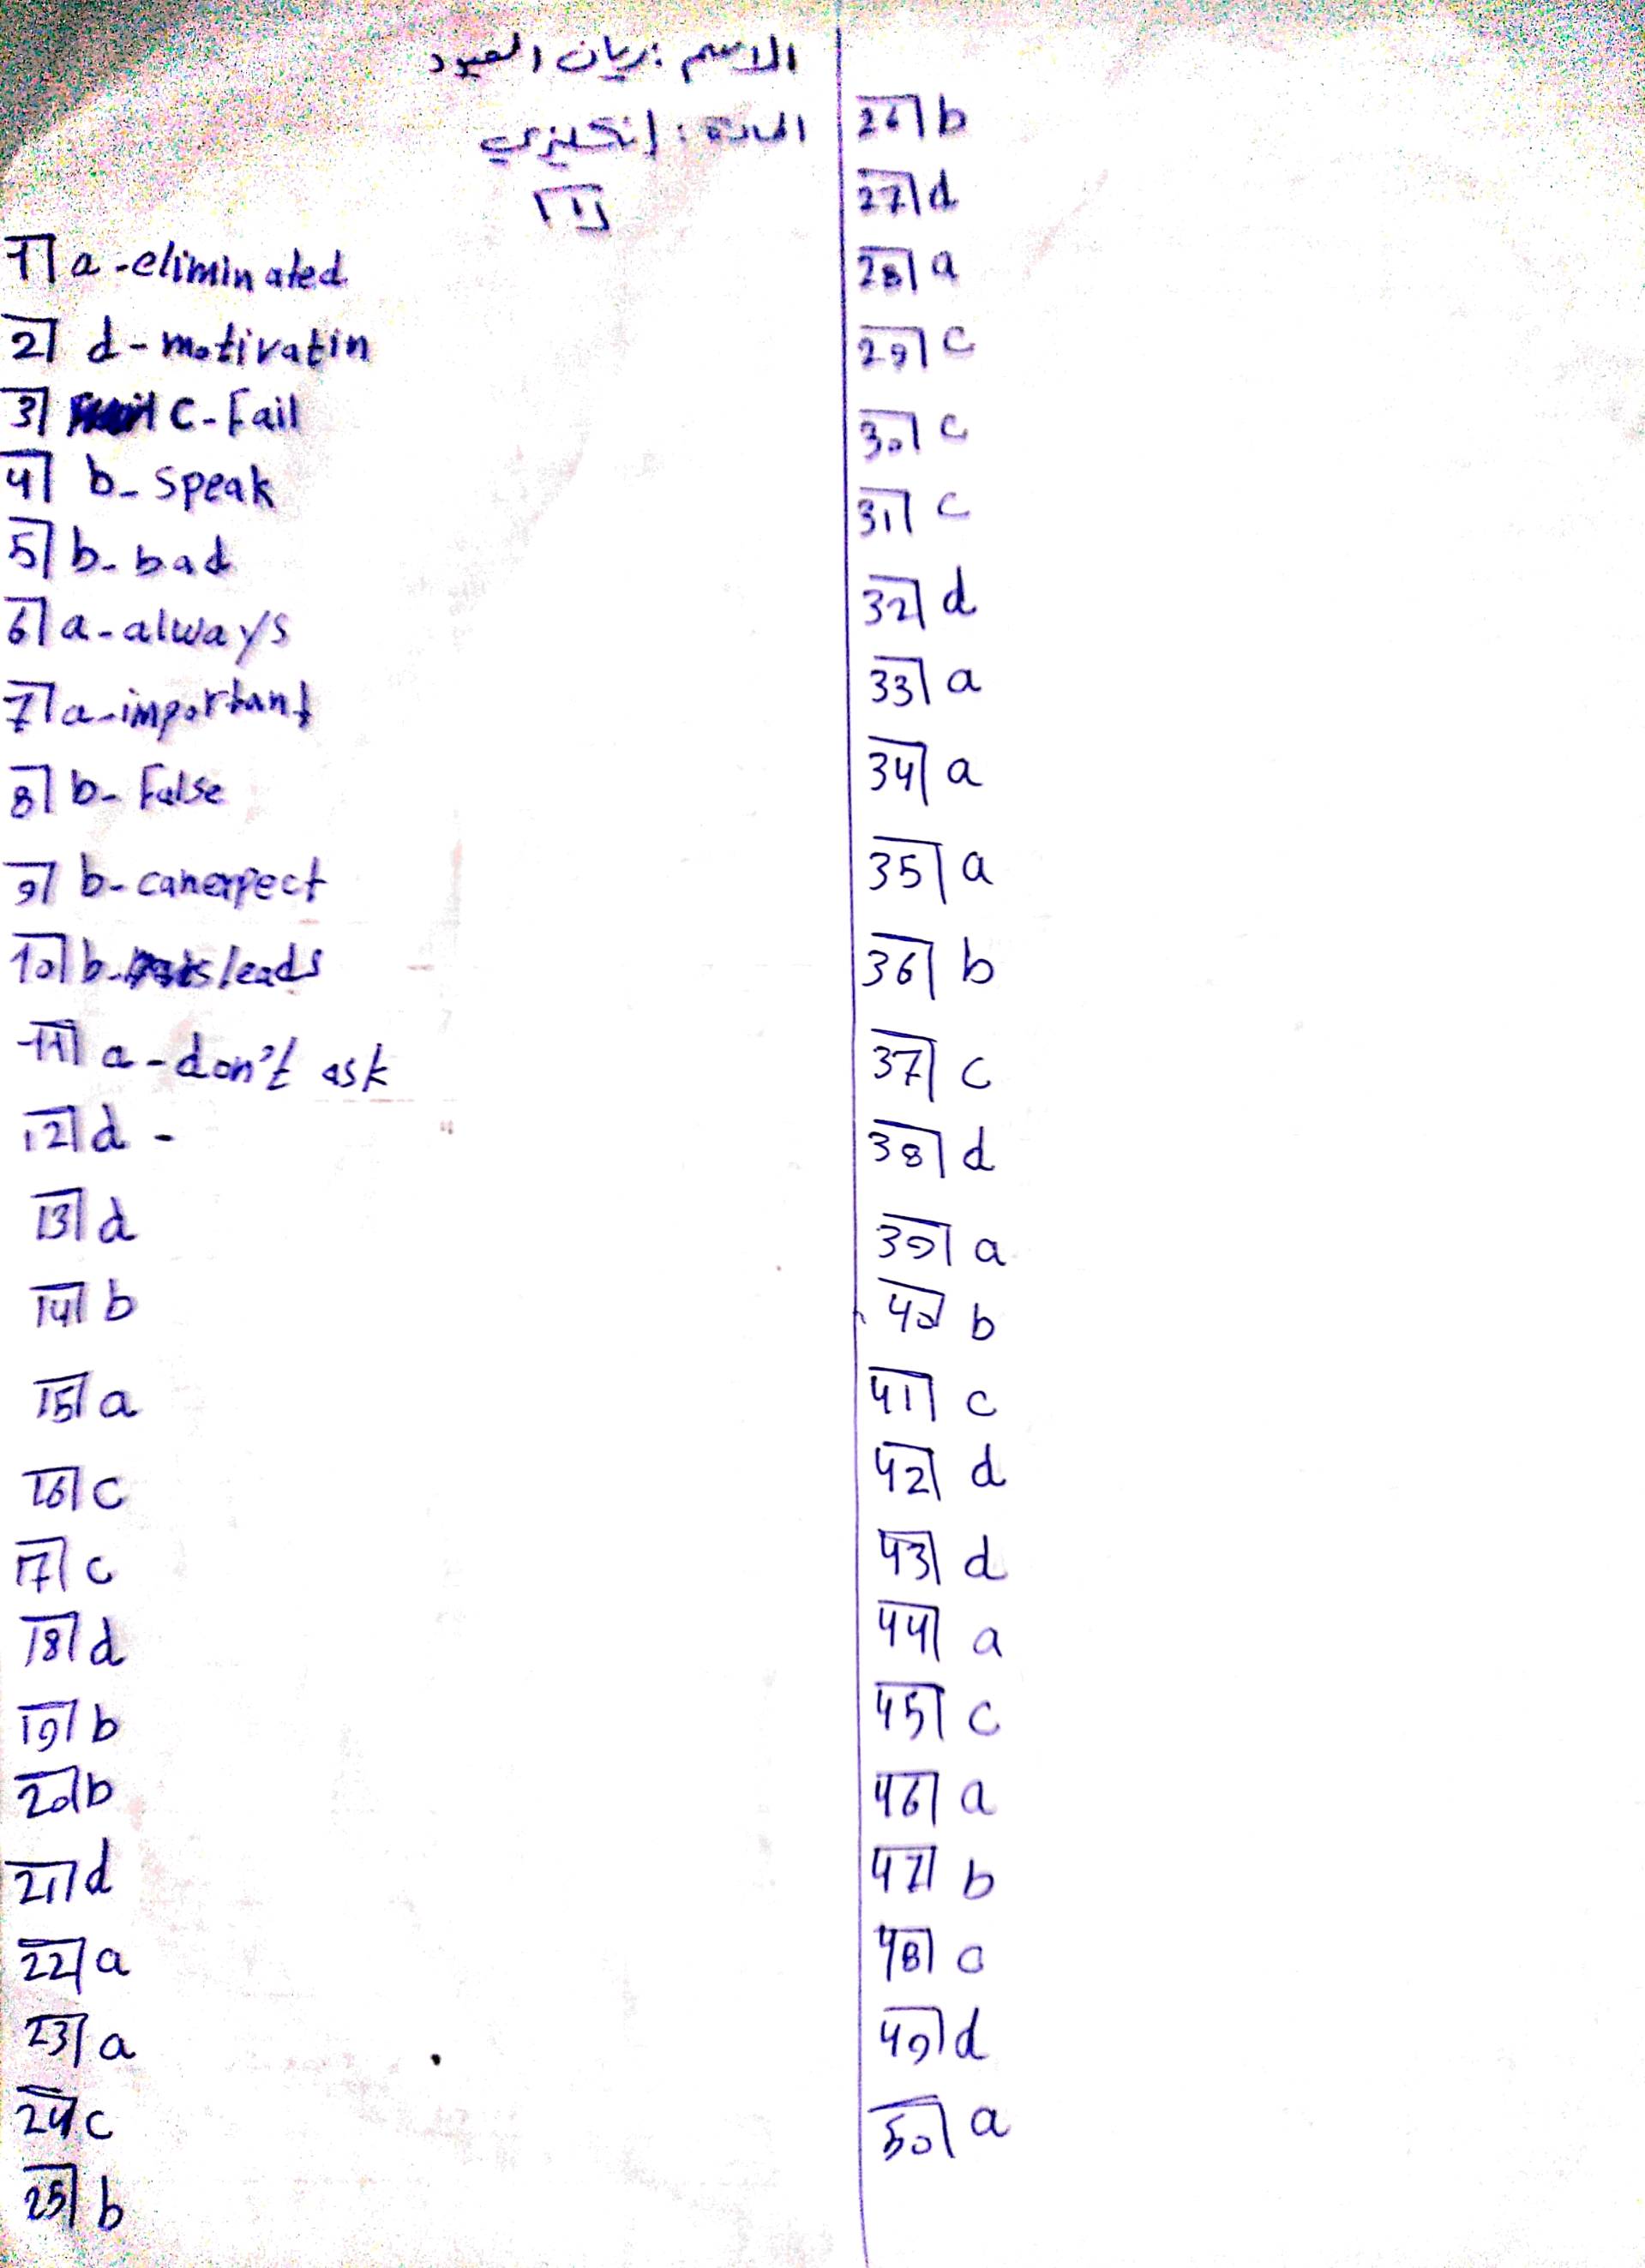 الاسم : ريان العبود
المادة : إنكليزي
11
1 a - eliminated
2 d - motivatin
3 c - Fail
4 b - speak
5 b - bad
6 a - always
7 a - important
8 b - False
9 b - canexpect
10 b - leads
11 a - don't ask
12 d -
13 d
14 b
15 a
16 c
17 c
18 d
19 b
20 b
21 d
22 a
23 a
24 c
25 b
26 b
27 d
28 a
29 c
30 c
31 c
32 d
33 a
34 a
35 a
36 b
37 c
38 d
39 a
40 b
41 c
42 d
43 d
44 a
45 c
46 a
47 b
48 c
49 d
50 a